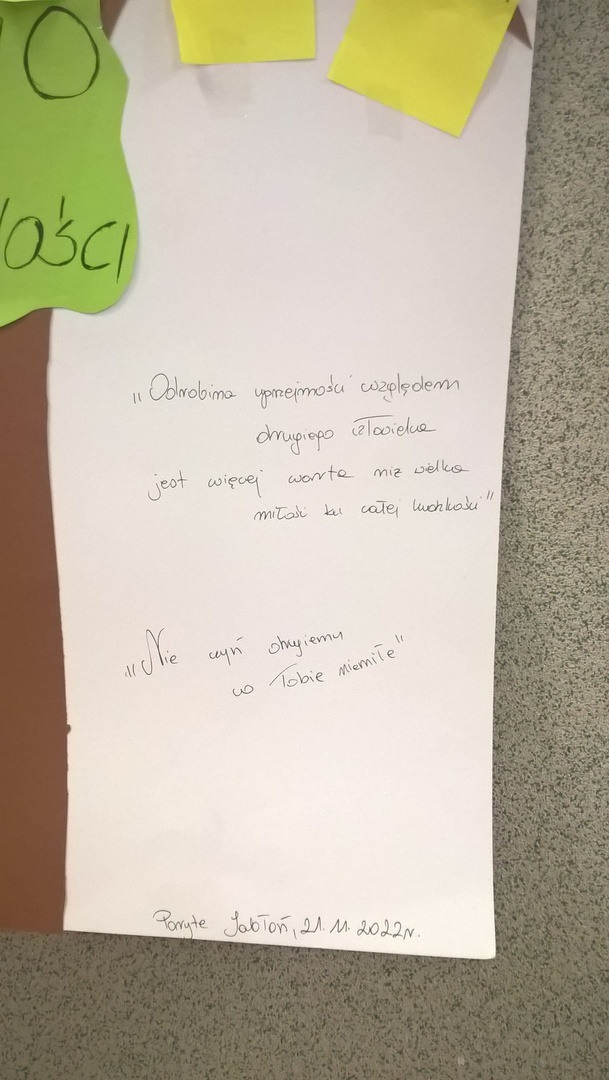 O
OŚCI
„Odrobina uprzejmości względem
drugiego człowieka
jest więcej warta niż wielka
miłość ku całej ludzkości"
„Nie czyń drugiemu
co Tobie niemiłe"
Poryte Jabłoń, 21.11.2022r.